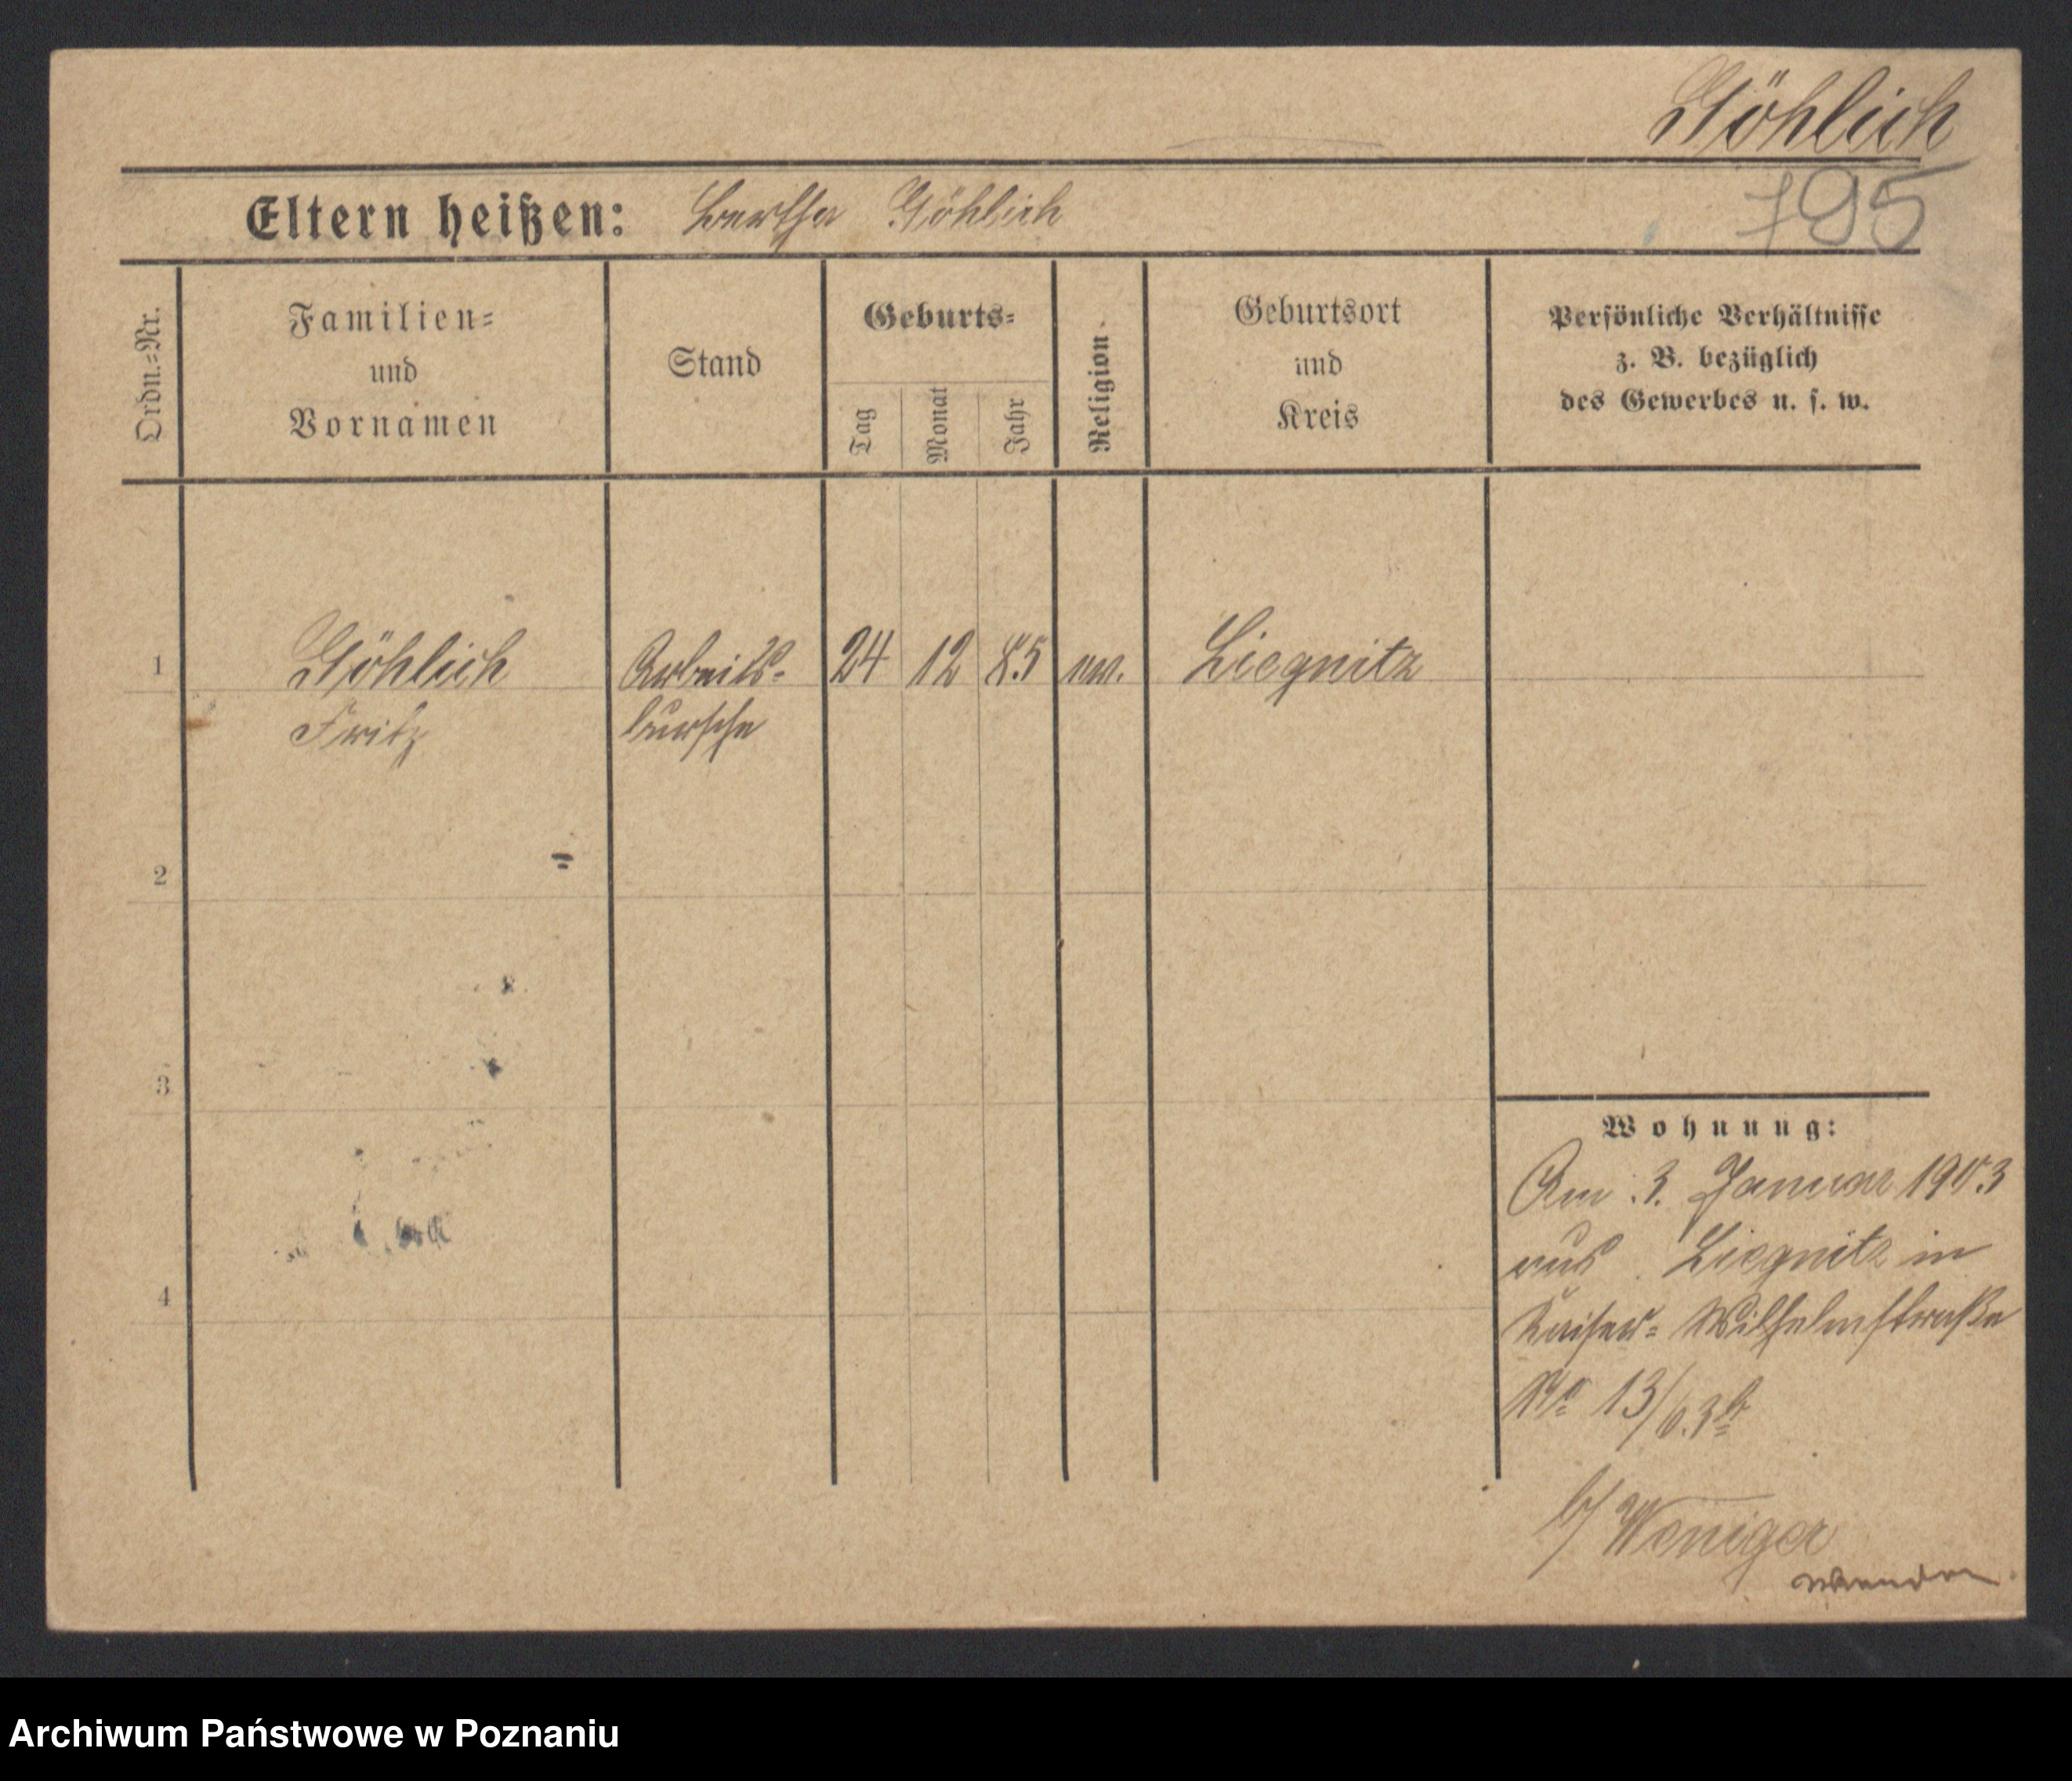 Göhlich
795
Eltern heißen: Bertha Göhlich
Ordn.-Nr.
Familien-
und
Vornamen
Stand
Geburts-
Tag
Monat
Jahr
Religion
Geburtsort
und
Kreis
Persönliche Verhältnisse
z. B. bezüglich
des Gewerbes u. s. w.
1 Göhlich Arbeits- 24 12 85 ev. Liegnitz
Fritz bursche
2
3
4
Wohnung:
Am 3. Januar 1903
aus Liegnitz in
Kaiser- Wilhelmstraße
No 13/
b/ Weniger
wenden
Archiwum Państwowe w Poznaniu